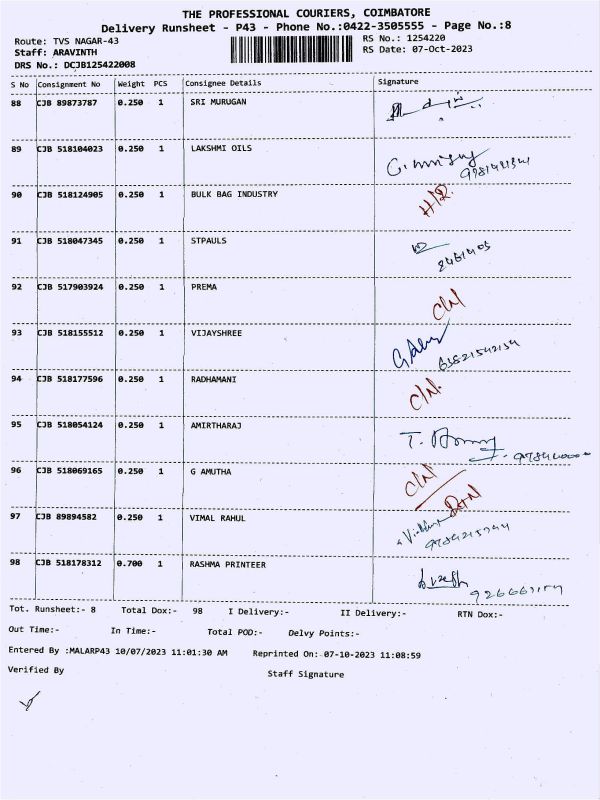 THE PROFESSIONAL COURIERS, COIMBATORE
Delivery Runsheet - P43 - Phone No.:0422-3505555 - Page No.:8
Route: TVS NAGAR-43 RS No.: 1254220
Staff: ARAVINTH RS Date: 07-Oct-2023
DRS No.: DCJB125422008
S No Consignment No Weight PCS Consignee Details Signature
88 CJB 89873787 0.250 1 SRI MURUGAN
89 CJB 518104023 0.250 1 LAKSHMI OILS
90 CJB 518124905 0.250 1 BULK BAG INDUSTRY
91 CJB 518047345 0.250 1 STPAULS
92 CJB 517903924 0.250 1 PREMA C/N
93 CJB 518155512 0.250 1 VIJAYSHREE
94 CJB 518177596 0.250 1 RADHAMANI C/N.
95 CJB 518054124 0.250 1 AMIRTHARAJ
96 CJB 518069165 0.250 1 G AMUTHA C/N
97 CJB 89894582 0.250 1 VIMAL RAHUL
98 CJB 518178312 0.700 1 RASHMA PRINTEER
Tot. Runsheet:- 8 Total Dox:- 98 I Delivery:- II Delivery:- RTN Dox:-
Out Time:- In Time:- Total POD:- Delvy Points:-
Entered By :MALARP43 10/07/2023 11:01:30 AM Reprinted On:-07-10-2023 11:08:59
Verified By Staff Signature